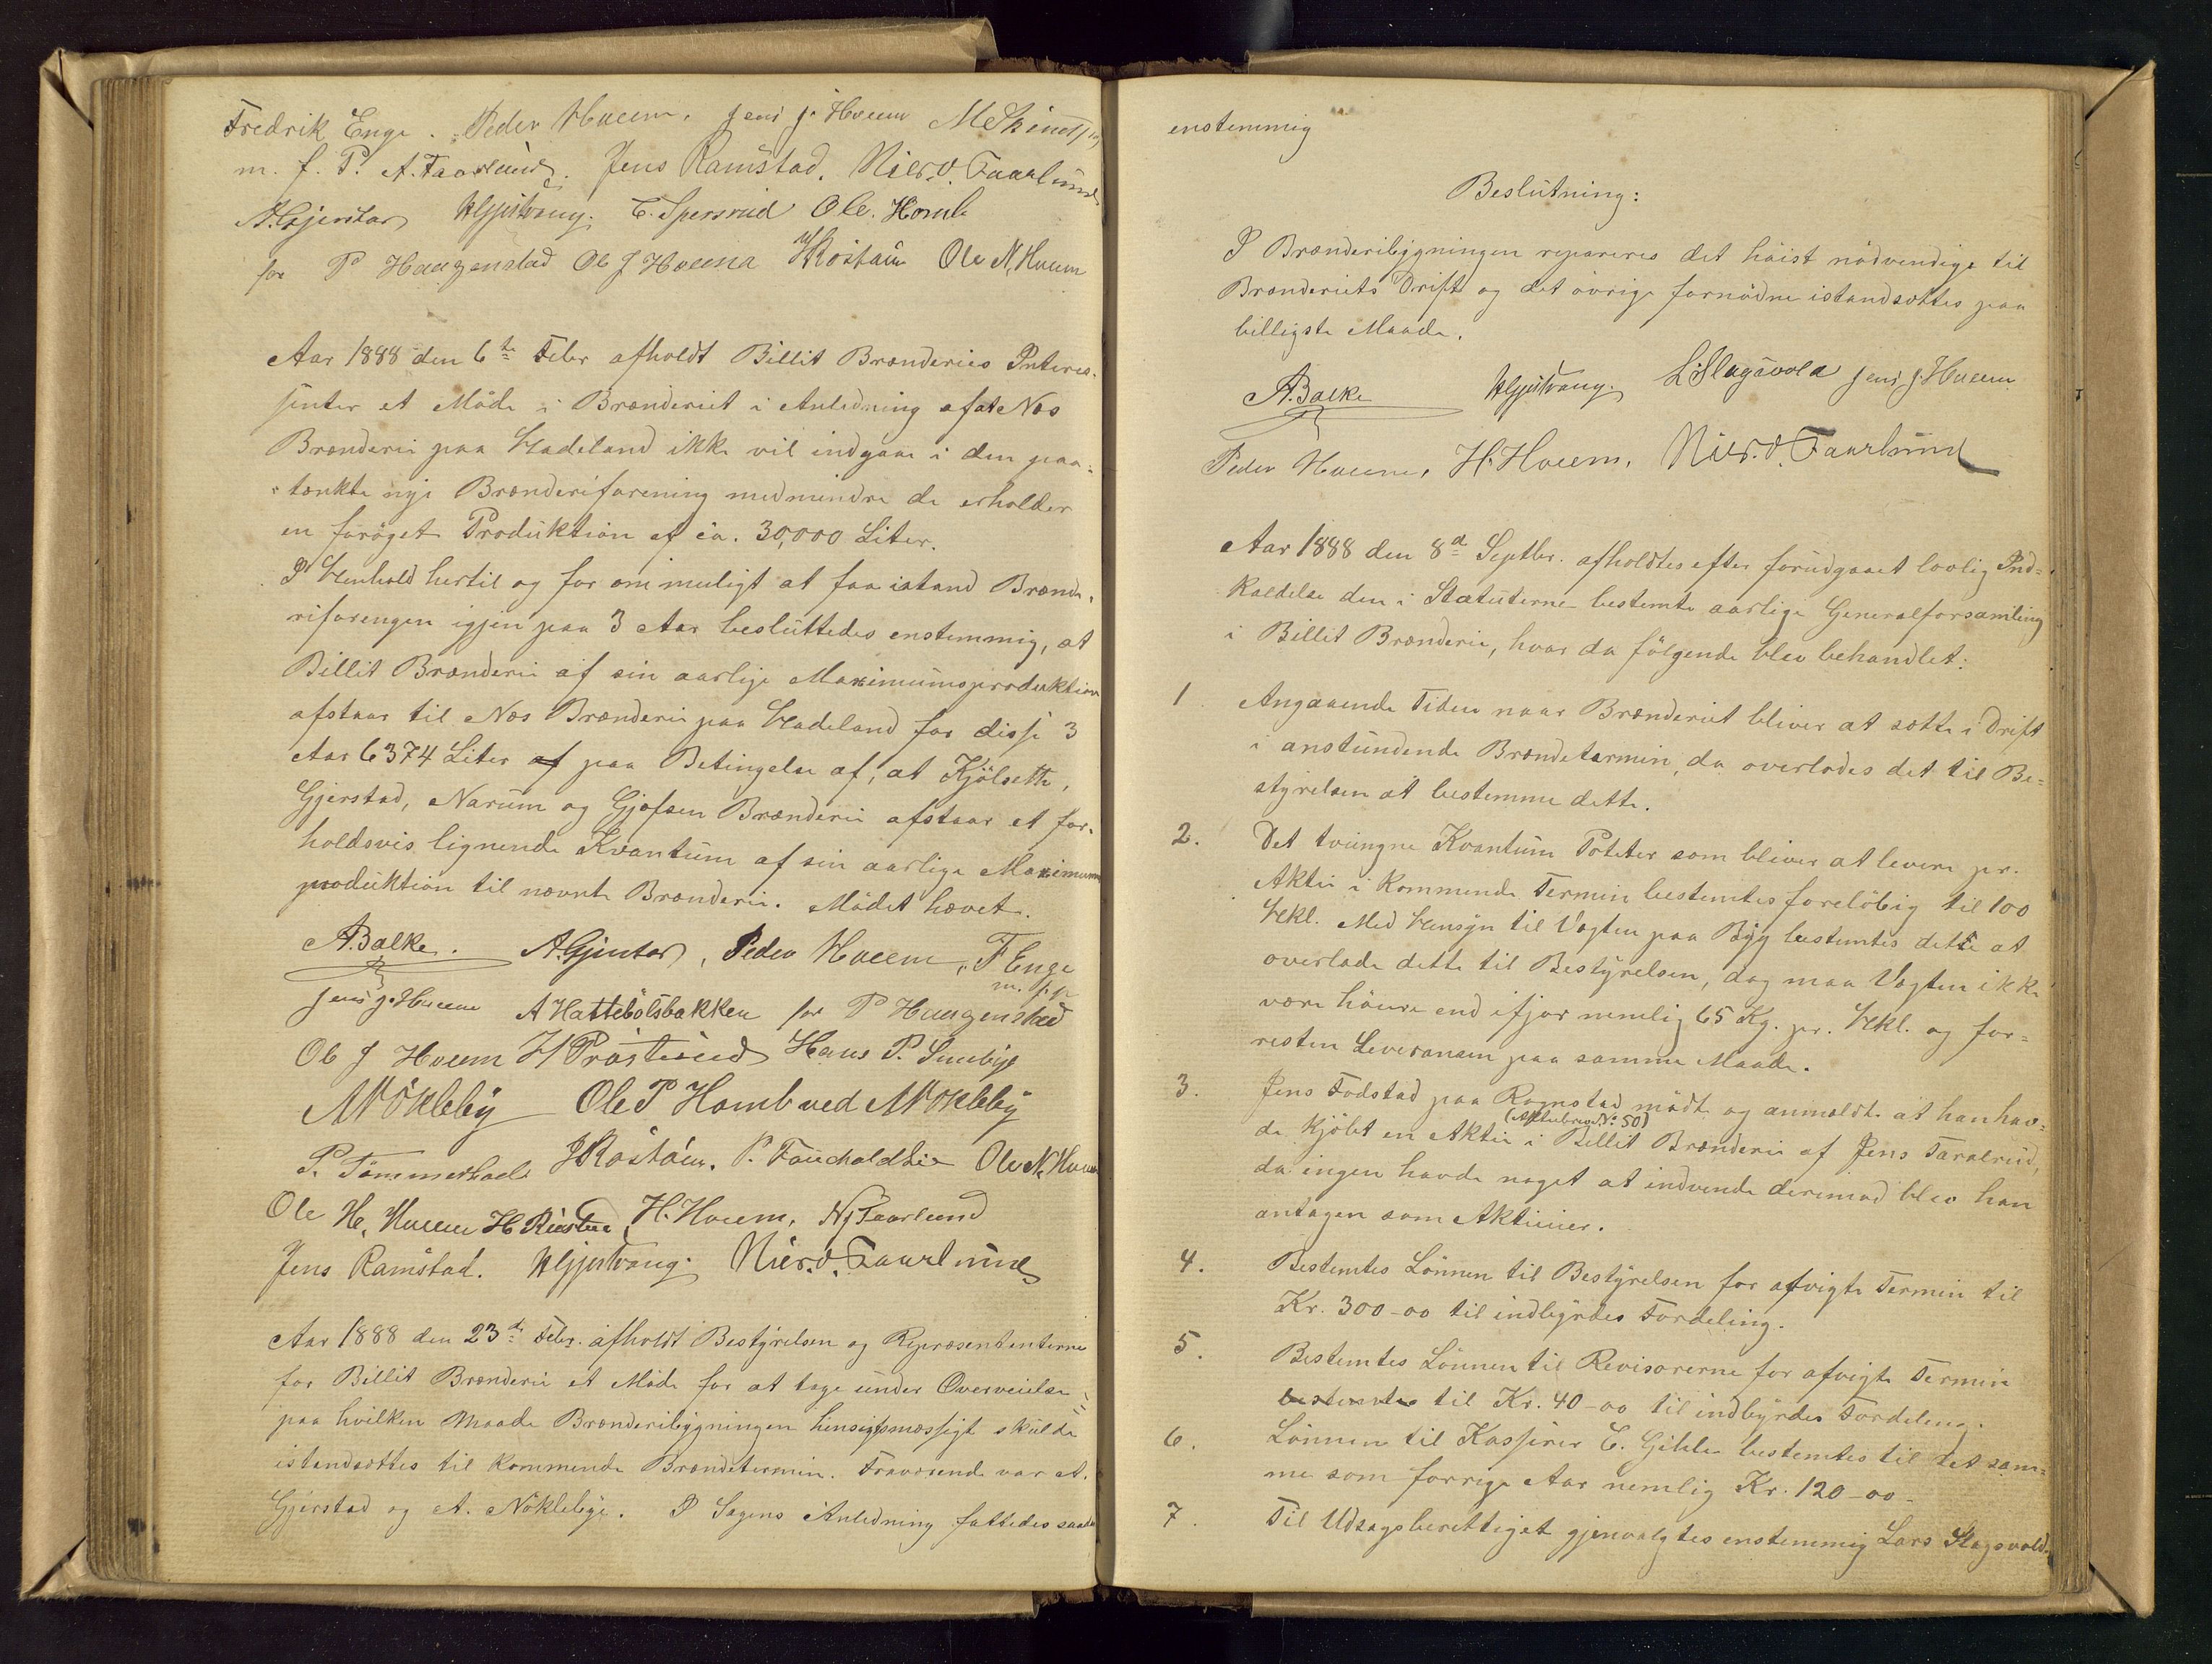 Fredrik Enge. Peder Hveem. Jens J. Hveem
m. f. P. A. Faarlund. Jens Ramstad. Nils. O. Faarlund
A. Gjerstad E. Spersrud Ole. Homb
for P Haugenstad Ole J Hveem J Røstøen Ole N. Hveem
Aar 1888 den 6te Febr afholdt Billit Brænderies Interes-
senter et Møde i Brænderiet i Anledning af at Næs
Brænderi paa Hadeland ikke vil indgaae i den paa-
tænkte nye Brænderiforening medmindre de erholder
en forøget Produktion af ca. 30,000 Liter.
I Henhold hertil og for om muligt at faa istand Brænde-
riforengen igjen paa 3 Aar besluttedes enstemmig, at
Billit Brænderi af sin aarlige Maximumsproduktion
afstaar til Næs Brænderi paa Hadeland for disse 3
Aar 6374 Liter af paa Betingelse af, at Kjølsette,
Gjerstad, Narum og Gjøfsen Brænderi afstaar et for-
holdsvis lignende Kvantum af sin aarlige Maximum
produktion til nævnte Brænderi. Mødet hævet.
A. Balke. A. Gjerstad, Peder Hveem, F Enge
m. f. p
Jens J. Hveem A Hattebølsbakken for P Haugenstad
Ole J Hveem H Prøstsæd Hans P. Sunbye
A Nøkleby Ole P Homb ved A Nøkleby
P. Tømmerhoel J Røstøen. P. Fauchaldlie Ole N. Hveem
Ole H. Hveem H. Hveem, N J Faarlund
Jens Ramstad. Nils. O. Faarlund
Aar 1888 den 23de Febr. afholdt Bestyrelsen og Repræsentanterne
for Billit Brænderi et Møde for at tage under Overveielse
paa hvilken Maade Brænderibygningen hensigtsmæssigt skulde
istandsættes til kommende Brændetermin. Fraværende var A.
Gjerstad og A. Nøklebye. I Sagens Anledning fattedes saadan
enstemmig
Beslutning:
I Brænderibygningen repareres det høist nødvendige til
Brænderiets Drift og det øvrige fornødne istandsættes paa
billigste Maade.
A. Balke L. Slagsvold Jens J. Hveem
Peder Hveem, H. Hveem, Nils. O. Faarlund
Aar 1888 den 8de Septbr. afholdtes efter forudgaaet lovlig Ind-
kaldelse den i Statuterne bestemte aarlige Generalforsamling
i Billit Brænderie, hvor da følgende blev behandlet:
1 Angaaende Tiden naar Brænderiet bliver at sætte i Drift
i anstundende Brændetermin, da overlodes det til Be-
styrelsen at bestemme dette.
2. Det tvungne Kvantum Poteter som bliver at levere pr.
Aktie i kommende Termin bestemtes foreløbig til 100
Hekl. Med Hensyn til Vægten paa Byg bestemtes dette at
overlade dette til Bestyrelsen, dog maa Vægten ikke
være høiere end ifjor nemlig 65 Kg. pr. Hekl. og for-
resten Leveransen paa samme Maade.
3. Jens Fodstad paa Rognstad mødte og anmeldte at han hav-
(Aktiebrev No: 50)
de kjøbt en Aktie i Billit Brænderi af Jens Taralrud,
da ingen havde noget at indvende derimod blev han
antagen som Aktieier.
4. Bestemtes Lønnen til Bestyrelsen for afvigte Termin til
Kr. 300-00 til indbyrdes Fordeling.
5. Bestemtes Lønnen til Revisorerne for afvigte Termin
bestemtes til Kr. 40-00 til indbyrdes Fordeling.
6. Lønnen til Kasserer E. Gihle bestemtes til det sam-
me som forrige Aar nemlig Kr. 120-00-
7. Til Udsagsberettiget gjenvalgtes enstemmig Lars Slagsvold.